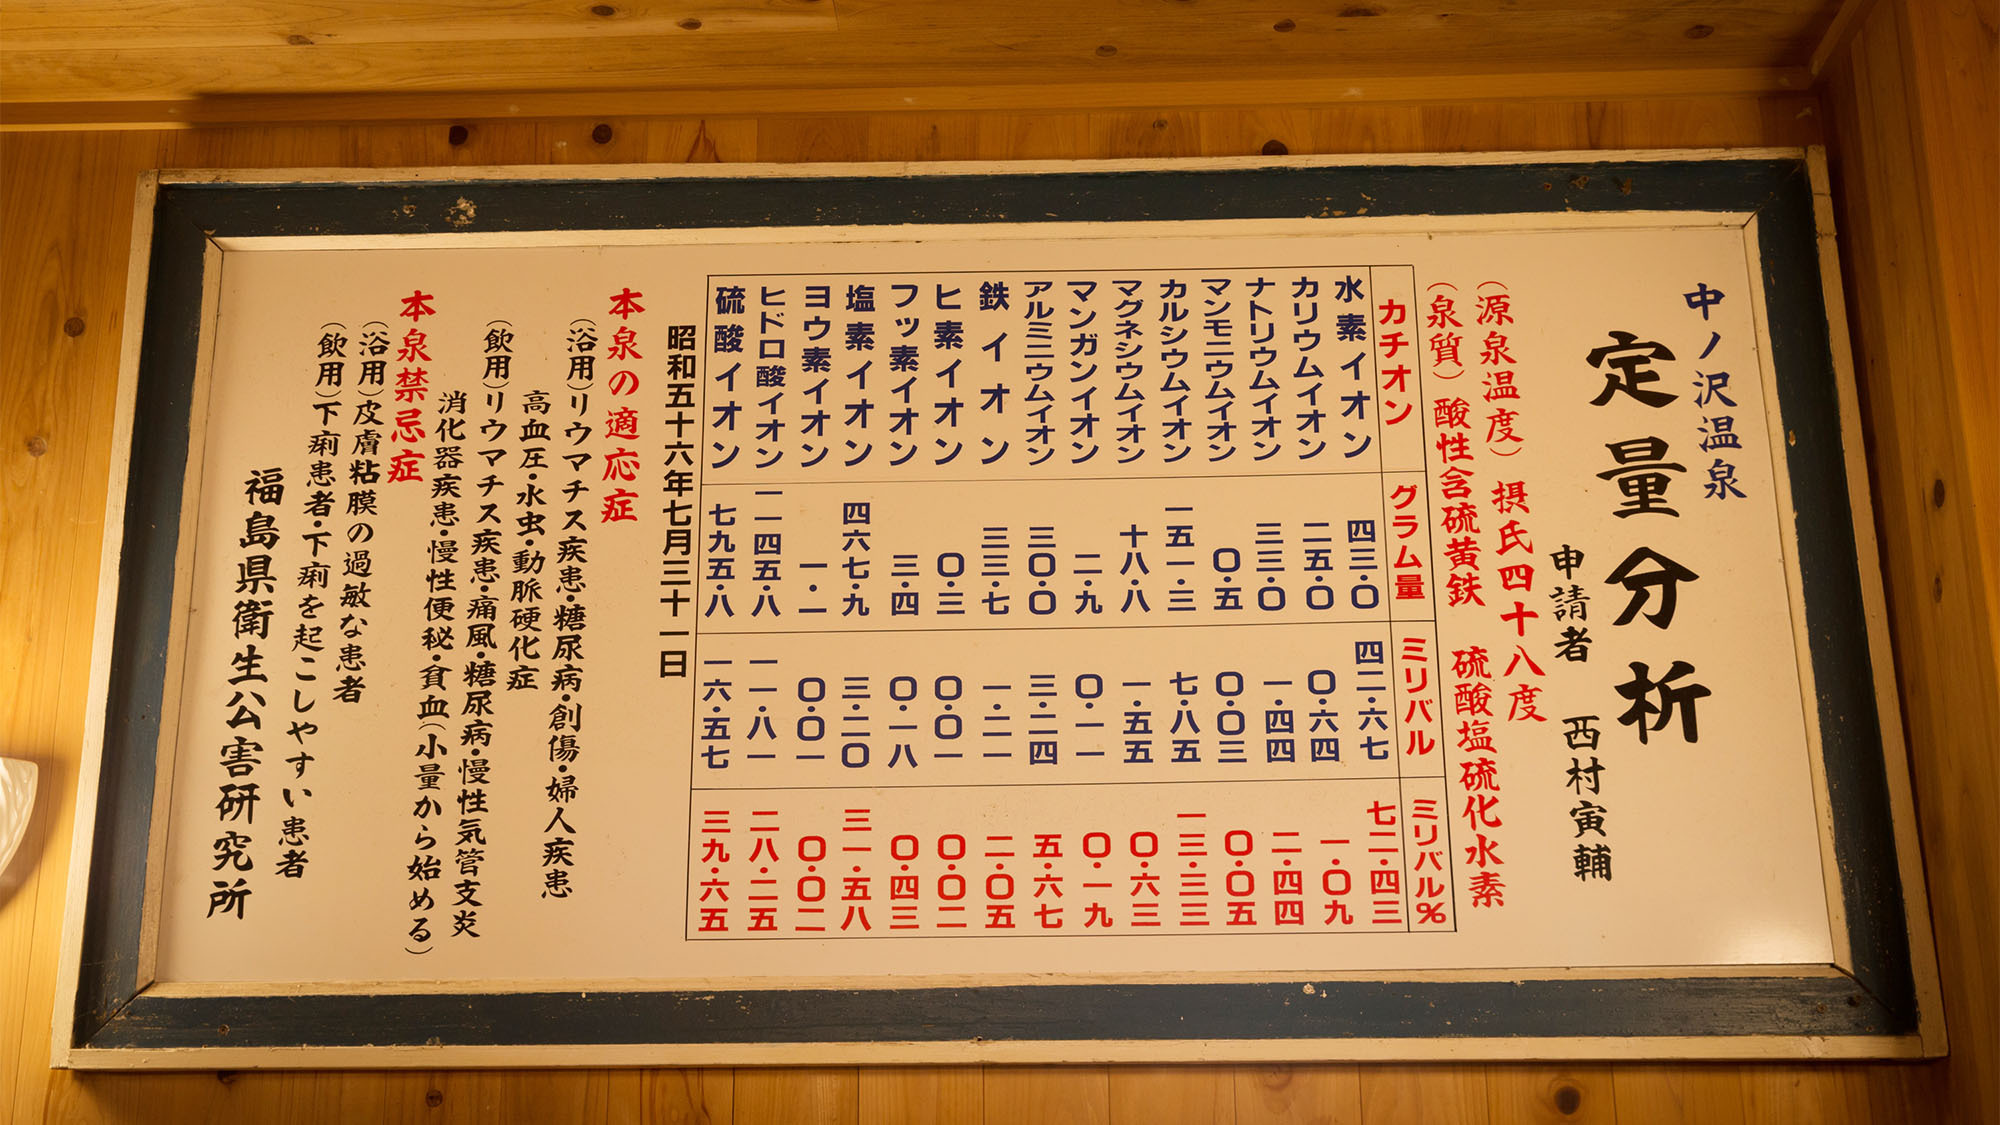 中ノ沢温泉
定量分析
申請者 西村寅輔
(源泉温度) 摂氏四十八度
(泉質)酸性含硫黄鉄 硫酸塩硫化水素
カチオン グラム量 ミリバル ミリバル%
水素イオン 四三・〇 四二・六七 七二・四三
カリウムイオン 二五・〇 〇・六四 一・〇九
ナトリウムイオン 三三・〇 一・四四 二・四四
マンモニウムイオン 〇・五 〇・〇三 〇・〇五
カルシウムイオン 一五一・三 七・八五 一三・三三
マグネシウムイオン 十八・八 一・五五 〇・六三
マンガンイオン 二・九 〇・一一 〇・一九
アルミニウムイオン 三〇・〇 三・二四 五・六七
鉄イオン 三三・七 一・二一 二・〇五
ヒ素イオン 〇・三 〇・〇一 〇・〇二
フッ素イオン 三・四 〇・一八 〇・四三
塩素イオン 四六七・九 三・二〇 三一・五八
ヨウ素イオン 一・一 〇・〇一 〇・〇二
ヒドロ酸イオン 一一四五・八 一一・八一 二八・二五
硫酸イオン 七九五・八 一六・五七 三九・六五
昭和五十六年七月三十一日
本泉の適応症
(浴用)リウマチス疾患・糖尿病・創傷・婦人疾患
高血圧・水虫・動脈硬化症
(飲用)リウマチス疾患・痛風・糖尿病・慢性気管支炎
消化器疾患・慢性便秘・貧血(小量から始める)
本泉禁忌症
(浴用)皮膚粘膜の過敏な患者
(飲用)下痢患者・下痢を起こしやすい患者
福島県衛生公害研究所